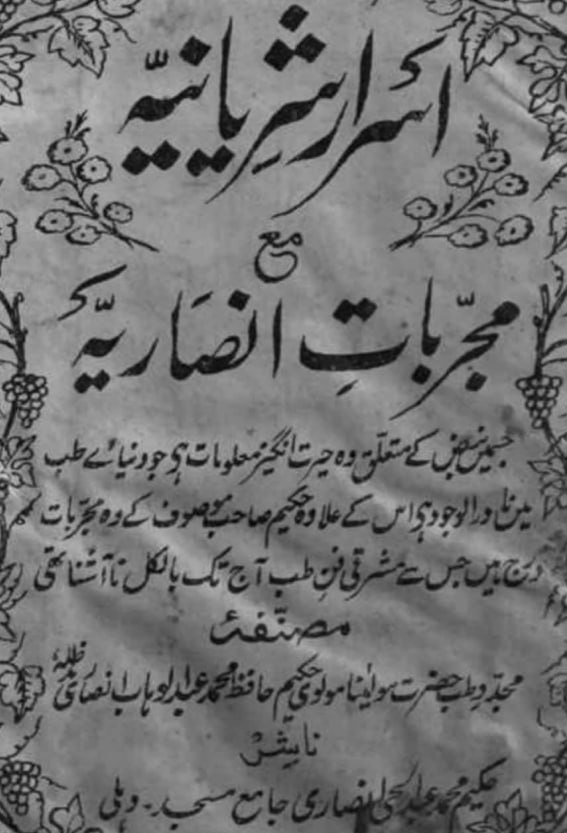 اسرار شریانیہ
مع
مجرّباتِ انصاریہ
جسمیں نبض کے متعلق وہ حیرت انگیز معلومات ہی جو دنیائے طب
میں نادر الوجود ہی اس کے علاوہ حکیم صاحب موصوف کے وہ مجرّبات
درج ہیں جس سے مشرقی فنِ طب آج تک بالکل ناآشنا تھی
مصنّفہٗ
مجدّدِ طب حضرت مولینا مولوی حکیم حافظ محمد عبدالوہاب انصاری مدظلہٗ
ناشر
حکیم محمد عبدالحی انصاری جامع مسجد۔ دہلی